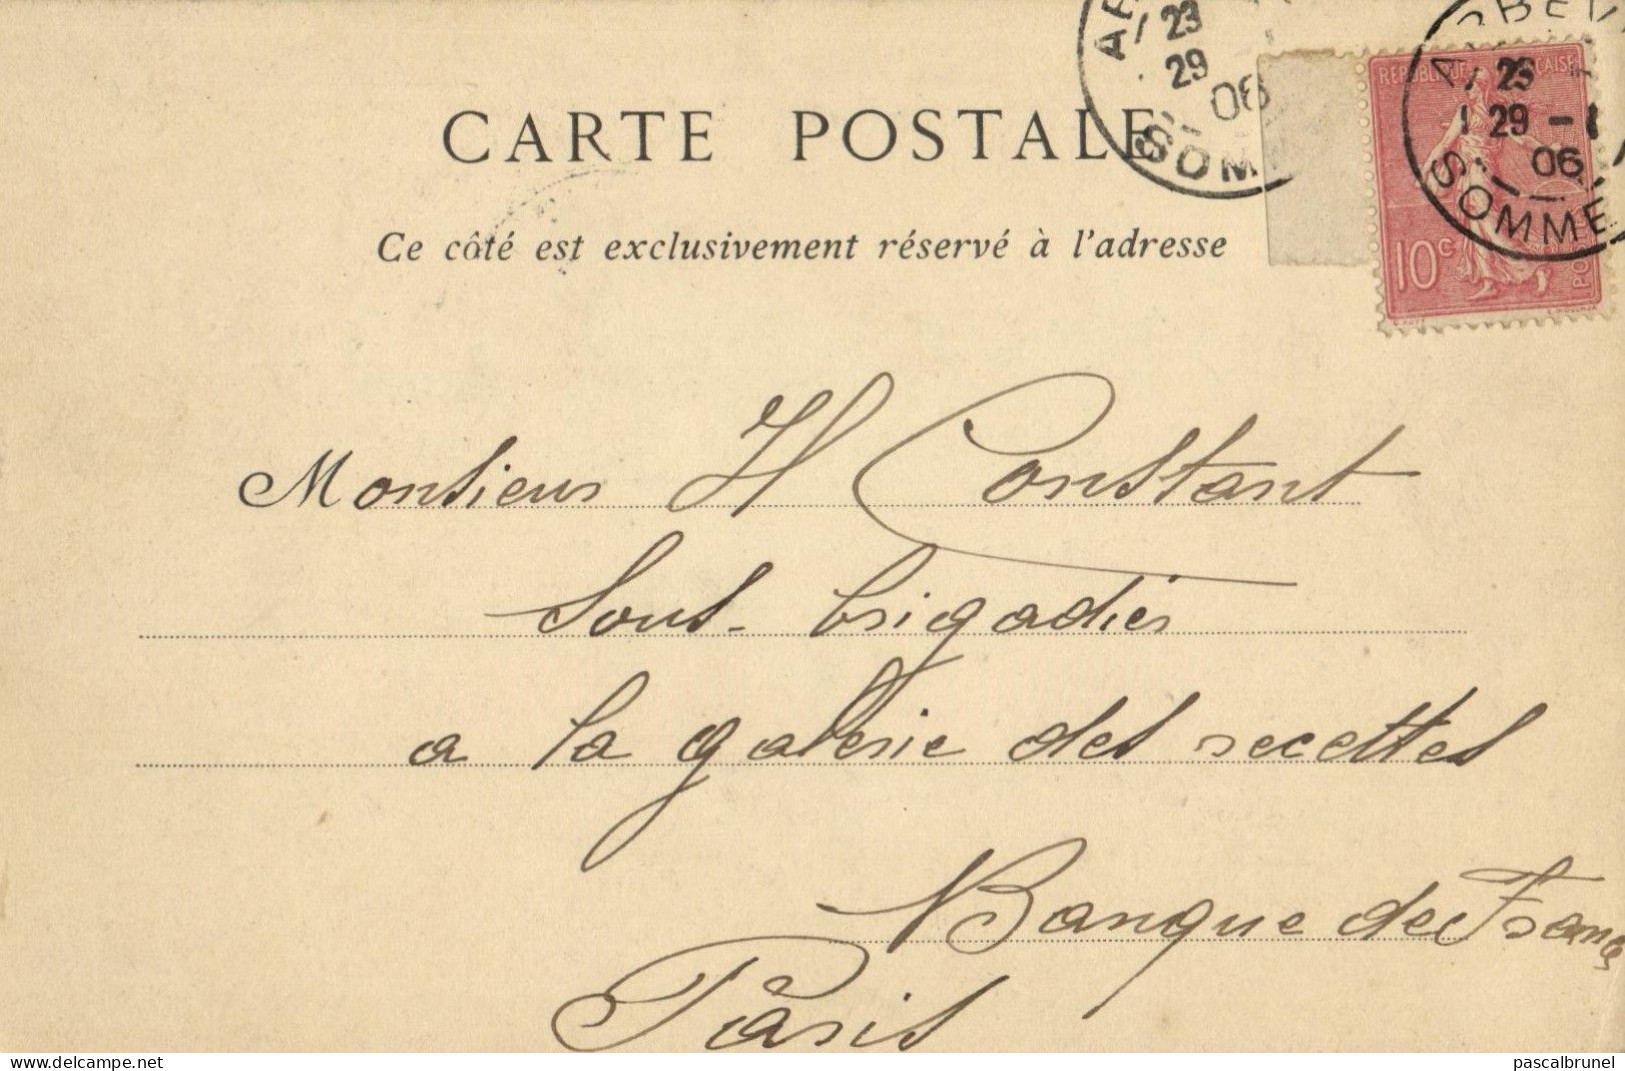 23
29
06
SOMM
BBEV
23
29 - 1
06
SOMME
REPUBLIQUE FRANÇAISE
10c
CARTE POSTALE
Ce côté est exclusivement réservé à l'adresse
Monsieur H Constant
Sous-brigadier
a la galerie des recettes
Banque de France
Paris
www.delcampe.net
pascalbrunel